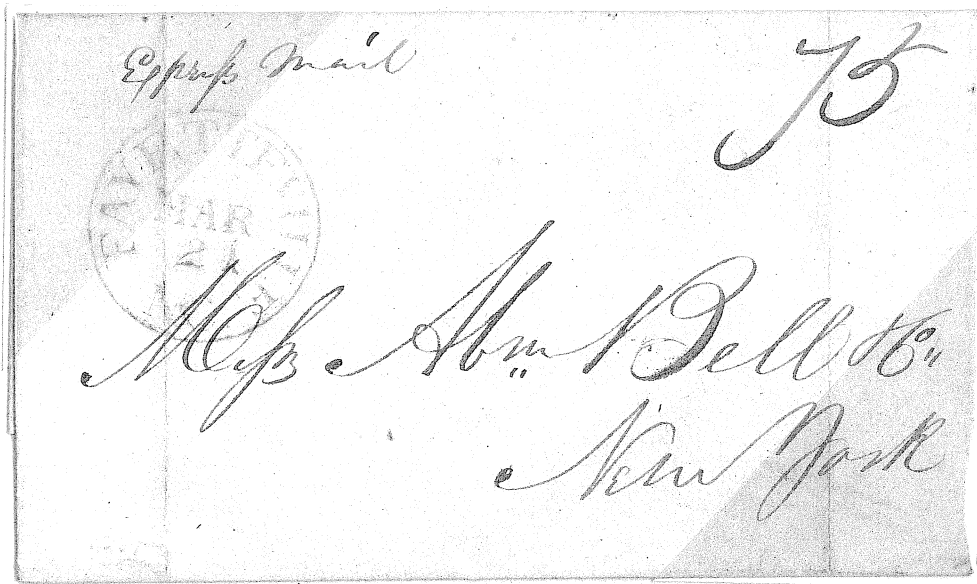 Express Mail
75
FAYETTEVILLE
MAR
21
Mess Abm Bell & Co
New York